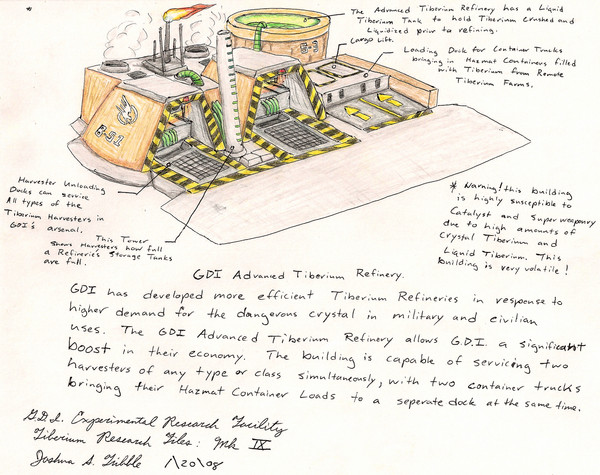 *
The Advanced Tiberium Refinery has a Liquid
Tiberium Tank to hold Tiberium Crushed and
Liquidized prior to refining.
Cargo Lift.
Loading Dock for Container Trucks
bringing in Hazmat Containers filled
with Tiberium from Remote
Tiberium Farms.
G-3
B-51
Harvester Unloading
Docks can service
All types of the
Tiberium Harvesters in
GDI's arsenal.
This Tower
shows Harvesters how full
a Refinerie's Storage Tanks
are full.
* Warning! this building
is highly susceptible to
Catalyst and Superweaponry
due to high amounts of
Crystal Tiberium and
Liquid Tiberium. This
building is very volatile!
GDI Advanced Tiberium Refinery.
GDI has developed more efficient Tiberium Refineries in response to
higher demand for the dangerous crystal in military and civilian
uses. The GDI Advanced Tiberium Refinery allows G.D.I. a significant
boost in their economy. The building is capable of servicing two
harvesters of any type or class simultaneously, with two container trucks
bringing their Hazmat Container Loads to a seperate dock at the same time.
G.D.I. Experimental Research Facility
Tiberium Research Files: Mk IX
Joshua A. Tribble 1/20/08